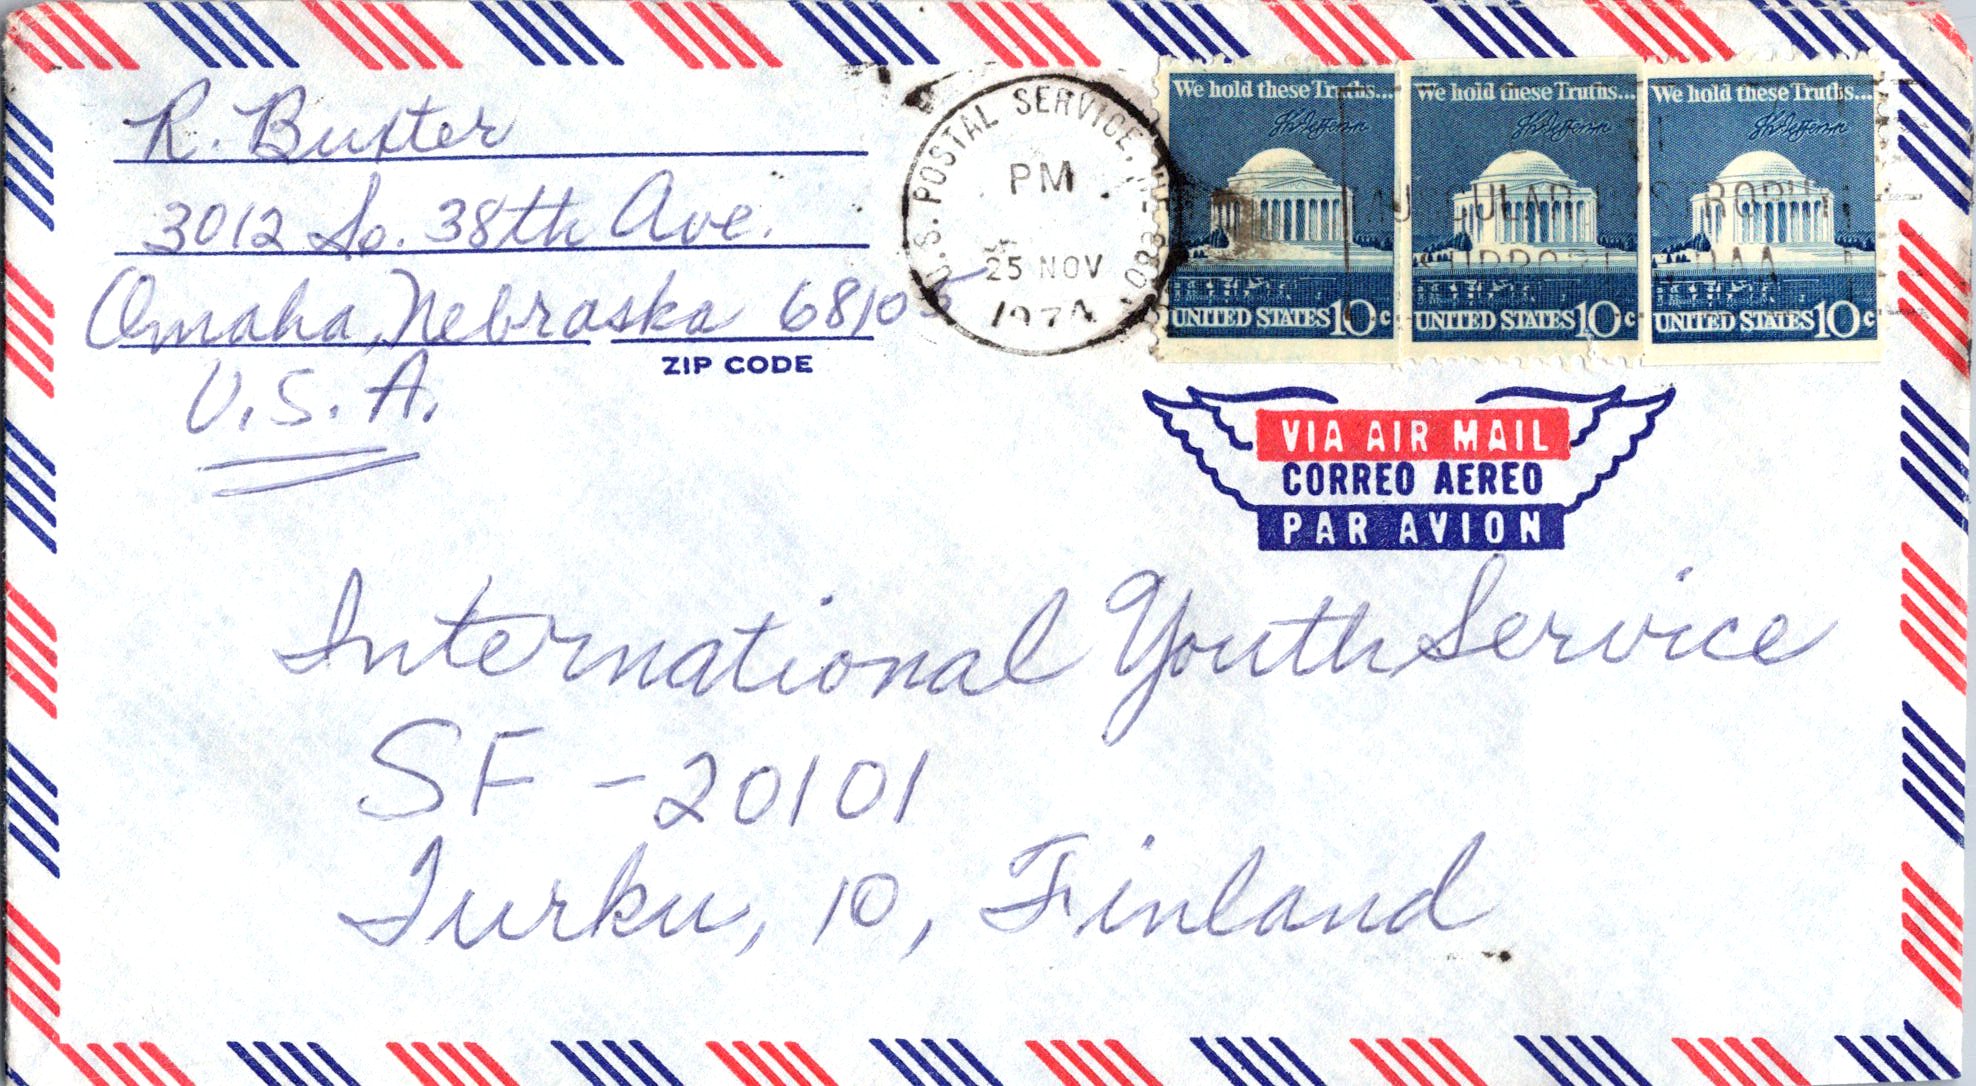 R. Buxter
3012 So. 38th Ave.
Omaha, Nebraska 68105
ZIP CODE
U.S.A.
U.S. POSTAL SERVICE,
PM
25 NOV
1974
We hold these Truths...
UNITED STATES 10c
We hold these Truths...
UNITED STATES 10c
We hold these Truths...
UNITED STATES 10c
SUPPORT
VIA AIR MAIL
CORREO AEREO
PAR AVION
International Youth Service
SF - 20101
Turku, 10, Finland